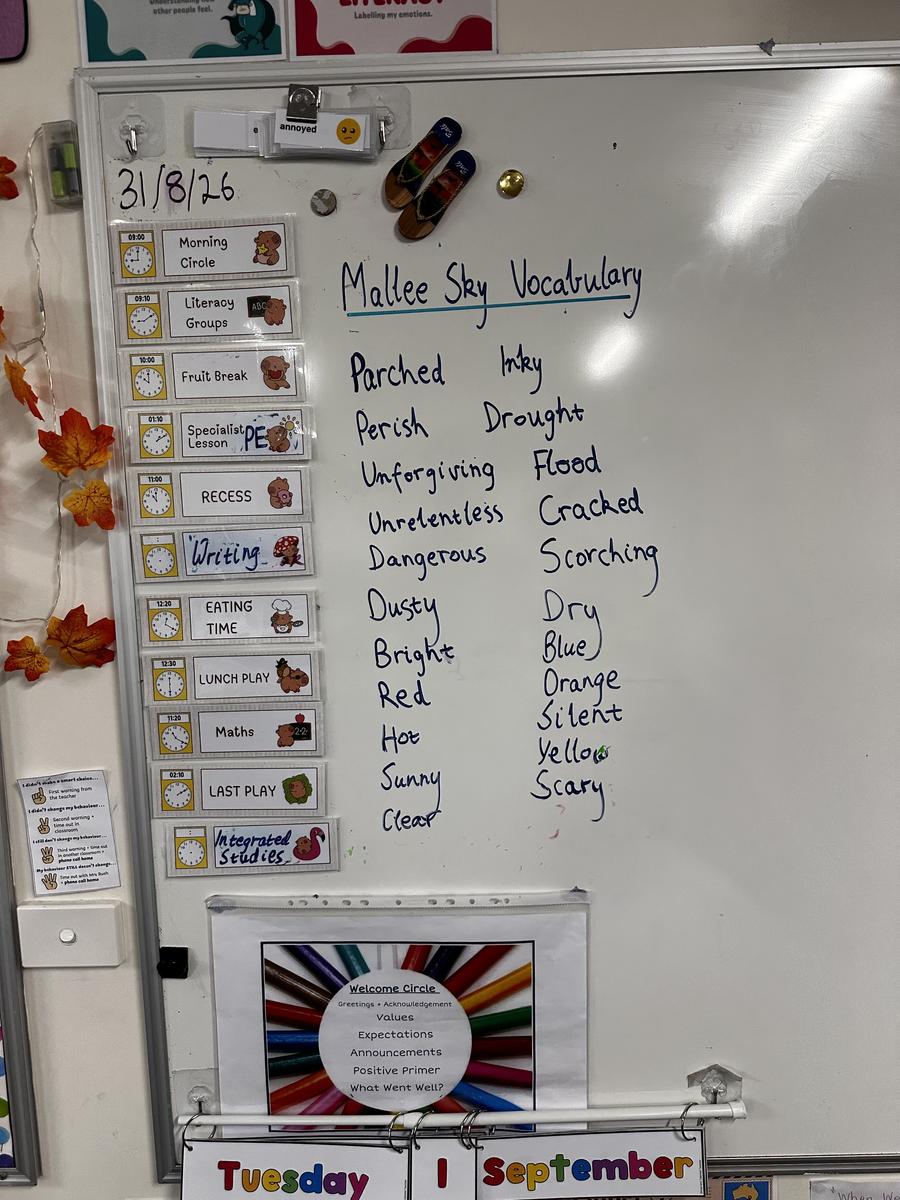 Understanding how
other people feel.
LITERACY
Labelling my emotions.
annoyed
31/8/26
09:00
Morning
Circle
09:10
Literacy
Groups
ABC
10:00
Fruit Break
01:10
Specialist
Lesson
PE
11:00
RECESS
Writing
12:20
EATING
TIME
12:30
LUNCH PLAY
11:20
Maths
02:10
LAST PLAY
Integrated
Studies
Mallee Sky Vocabulary
Parched Inky
Perish Drought
Unforgiving Flood
Unrelentless Cracked
Dangerous Scorching
Dusty Dry
Bright Blue
Red Orange
Hot Silent
Sunny Yellow
Clear Scary
I didn't make a smart choice...
First warning from
the teacher
I didn't change my behaviour...
Second warning +
time out in
classroom
I still don't change my behaviour...
Third warning + time out
in another classroom +
phone call home
My behaviour STILL doesn't change...
Time out with Mrs Rush
+ phone call home
Welcome Circle
Greetings + Acknowledgement
Values
Expectations
Announcements
Positive Primer
What Went Well?
Tuesday 1 September